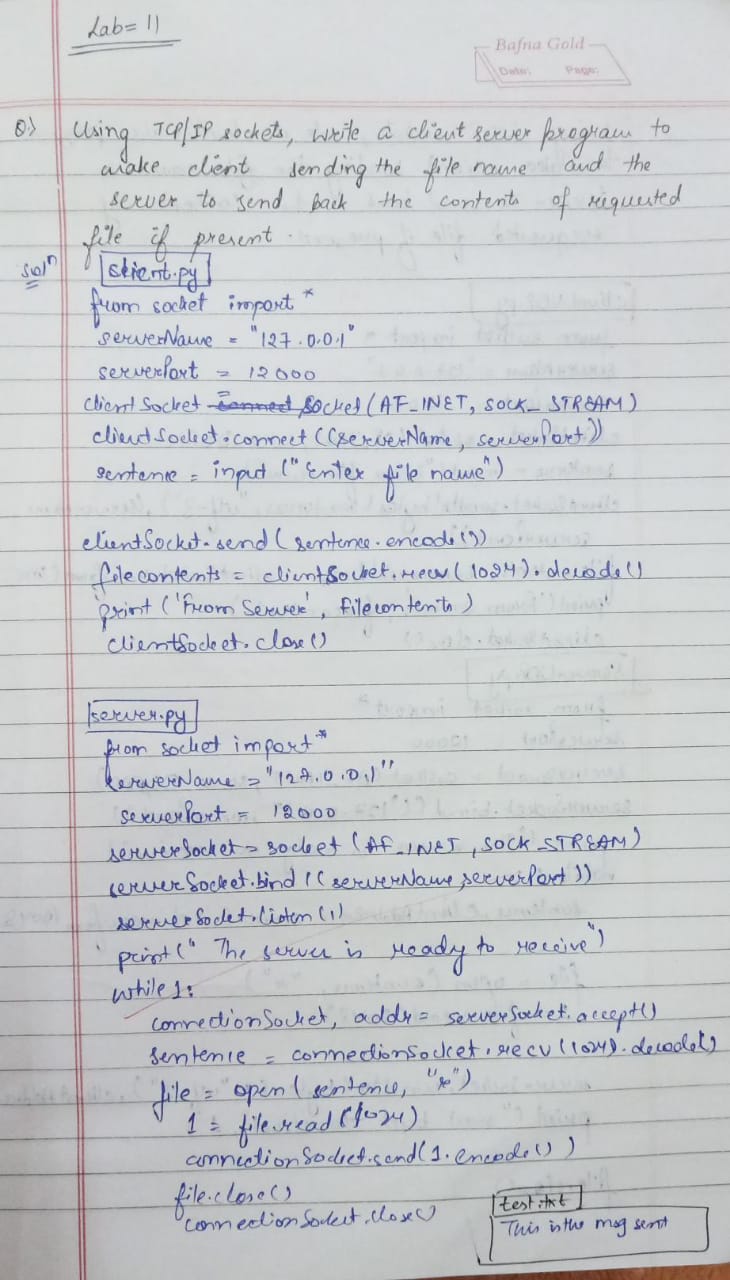 Lab= 11
Bafna Gold
Date: Page:
Q) Using TCP/IP sockets, write a client server program to
make client sending the file name and the
server to send back the contents of requested
file if present.
Solⁿ
client.py
from socket import *
serverName = "127.0.0.1"
serverPort = 12000
clientSocket = socket (AF_INET, SOCK_STREAM)
clientSocket.connect ((serverName, serverPort))
sentence = input ("Enter file name")
clientSocket.send (sentence.encode())
filecontents = clientSocket.recv (1024).decode()
print ('From Server', filecontents)
clientSocket.close()
server.py
from socket import *
serverName = "127.0.0.1"
serverPort = 12000
serverSocket = socket (AF_INET, SOCK_STREAM)
serverSocket.bind ((serverName, serverPort))
serverSocket.listen (1)
print (" The server is ready to receive")
while 1:
connectionSocket, addr = serverSocket.accept()
sentence = connectionSocket.recv (1024).decode()
file = open (sentence, "r")
l = file.read (1024)
connectionSocket.send (l.encode())
file.close()
connectionSocket.close()
test.txt
This is the msg sent